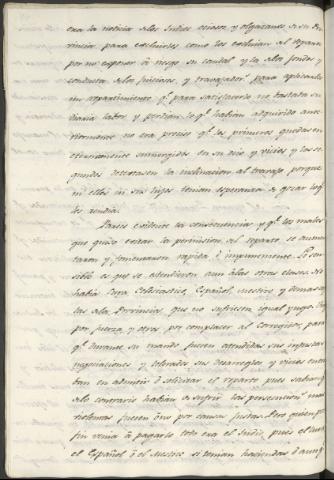 era la noticia de los Indios ociosos y olgazanes de su Pro-
vincia para excluirlos como los excluian del reparto
por no esponer á riesgo su caudal y la de los fondos y
conducta de los juiciosos, y travajadores para aplicarles
un repartimiento qe. para satisfacerlo no bastaba su
diaria labor y perdian lo qe. habian adquirido ante-
riormente no era preciso qe. los primeros quedasen
eternamente sumergidos en su ocio y vicios y los se-
gundos detestasen la inclinacion al travajo porque
ni ellos ni sus hijos tenian esperanza de gozar lo qe.
les rendia.
Parece evidente la consecuencia y qe. los males
que quiso evitar la permision del reparto se aumen-
taron y fomentaron rapida é impunemente. Lo sen-
sible es que se atendieron aun á las otras clases. No
habia Cura Eclesiastico, Español, mestizo y demas cas-
tas de la Provincia, que no sufriesen igual yugo. Unos
por fuerza y otros por complacer al Corregidor, para
qe. durante su mando fuesen atendidas sus injustas
negociaciones y tolerados sus desarreglos y vicios
en admitir ó solicitar el reparto pues sabian qe.
de lo contrario habian de sufrir las persecuciones mas
fuesen ó no por causas justas. Pero quien por
fin venia á pagarlo todo era el Indio, pues el Cura
el Español ó el Mestizo si tenian haciendas ó